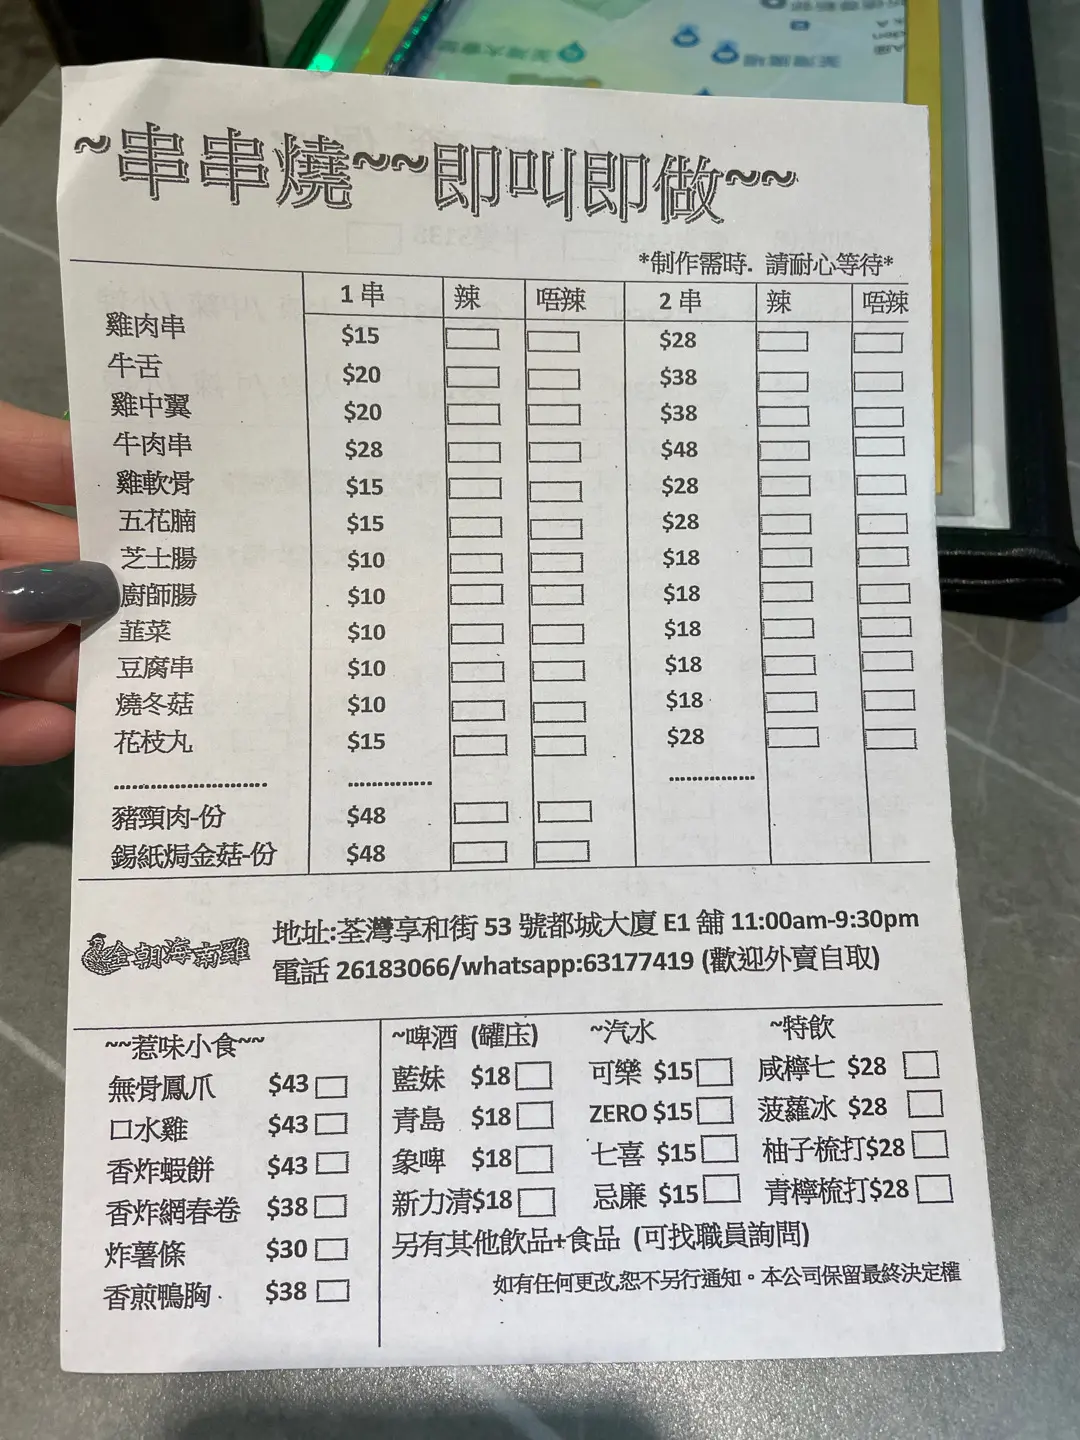 ~串串燒~~即叫即做~~
*制作需時. 請耐心等待*
1 串 辣 唔辣 2 串 辣 唔辣
雞肉串 $15 $28
牛舌 $20 $38
雞中翼 $20 $38
牛肉串 $28 $48
雞軟骨 $15 $28
五花腩 $15 $28
芝士腸 $10 $18
廚師腸 $10 $18
韮菜 $10 $18
豆腐串 $10 $18
燒冬菇 $10 $18
花枝丸 $15 $28
豬頸肉-份 $48
錫紙焗金菇-份 $48
金朝海南雞
地址:荃灣享和街 53 號都城大廈 E1 舖 11:00am-9:30pm
電話 26183066/whatsapp:63177419 (歡迎外賣自取)
~~惹味小食~~
無骨鳳爪 $43
口水雞 $43
香炸蝦餅 $43
香炸網春卷 $38
炸薯條 $30
香煎鴨胸 $38
~啤酒 (罐庄) ~汽水 ~特飲
藍妹 $18 可樂 $15 咸檸七 $28
青島 $18 ZERO $15 菠蘿冰 $28
象啤 $18 七喜 $15 柚子梳打$28
新力清$18 忌廉 $15 青檸梳打$28
另有其他飲品+食品 (可找職員詢問)
如有任何更改,恕不另行通知。本公司保留最終決定權